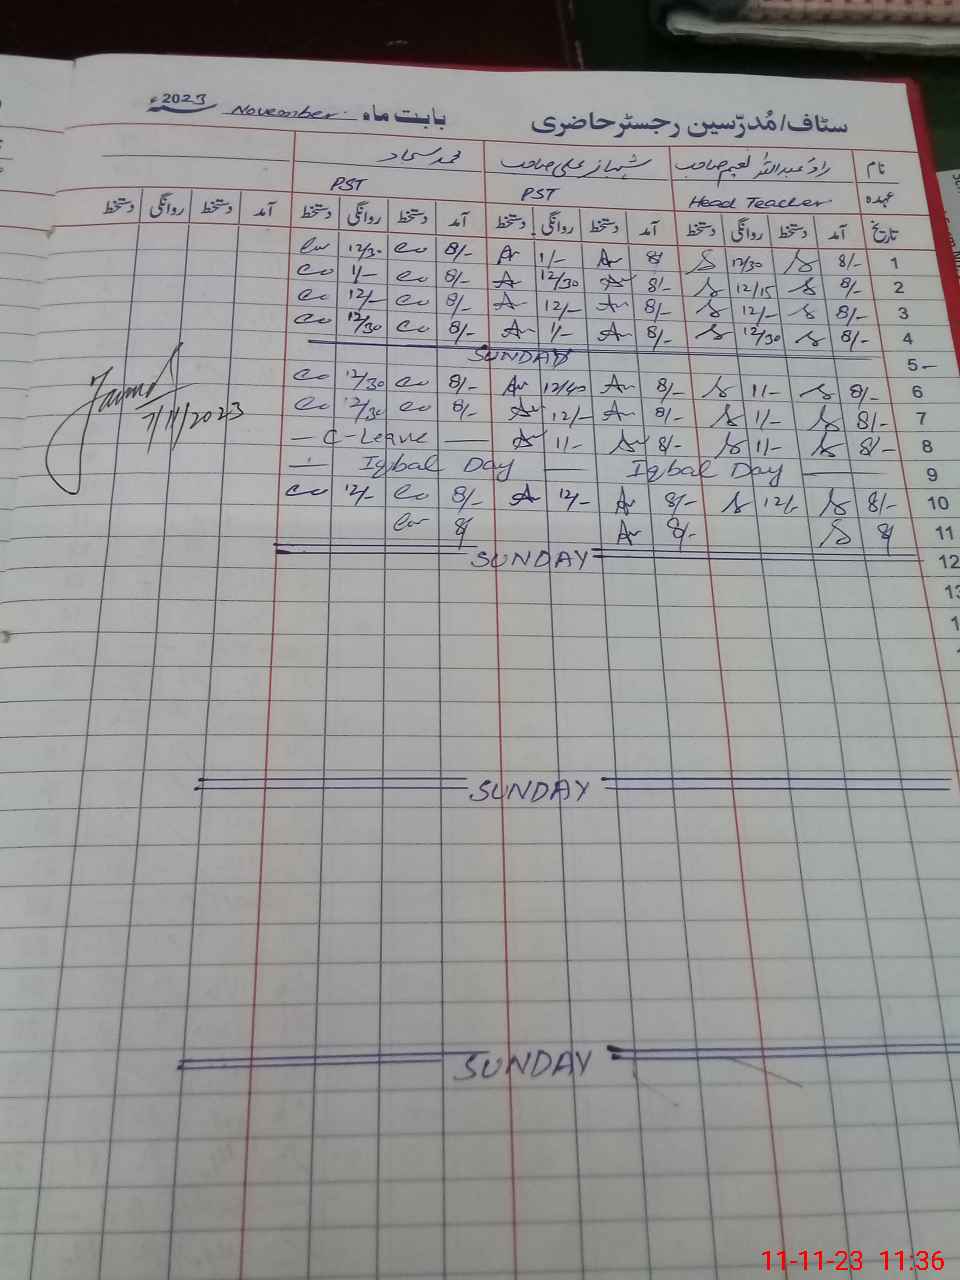 سٹاف/مُدرّسین رجسٹر حاضری بابت ماہ November 2023ء
نام راؤ عبداللہ نعیم صاحب شہباز علی صاحب محمد سجاد
عہدہ Head Teacher PST PST
تاریخ آمد دستخط روانگی دستخط آمد دستخط روانگی دستخط آمد دستخط روانگی دستخط آمد دستخط روانگی دستخط
1 8/- 12/30 8/ 1/- 8/- 12/30
2 8/- 12/15 8/- 12/30 8/- 1/-
3 8/- 12/- 8/- 12/- 8/- 12/-
4 8/- 12/30 8/- 1/- 8/- 12/30
5 SUNDAY
6 8/- 11- 8/- 12/40 8/- 12/30
7 8/- 11/- 8/- 12/- 8/- 12/30
8 8/- 11- 8/- 11- C-Leave
9 Iqbal Day Iqbal Day
10 8/- 12/- 8/- 12/- 8/- 12/-
11 8/ 8/- 8/
12 SUNDAY
13
7/11/2023
SUNDAY
SUNDAY
11-11-23 11:36